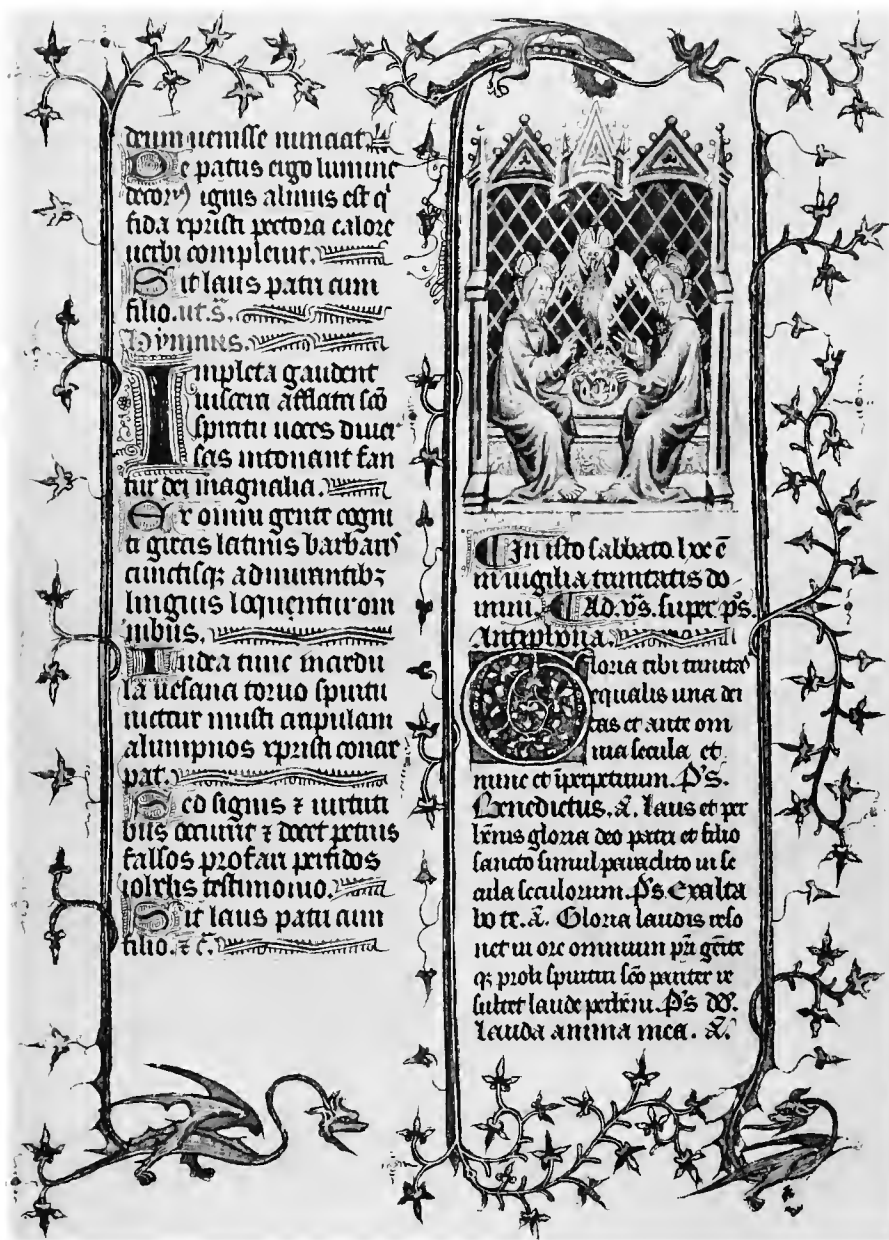 deum uenisse nunciat.
De patris ergo lumine
decorꝰ ignis almus est qͥ
fida xpristi pectora calore
uerbi compleuit.
Sit laus patri cum
filio. ut .s̄.
Hymnus.
Impleta gaudent
uiscera afflata sc̄o
spiritu uoces diuer
sas intonant fan
tur dei magnalia.
Ex omni gente cogni
ti grecis latinis barbaris
cunctisqꝫ admirantibꝫ
linguis loquentur om
nibus.
Iudea tunc incredu
la uesana toruo spiritu
ructare musti crapulam
alumpnos xpristi concre
pat.
Sed signis ⁊ uirtuti
bus occurrit ⁊ docet petrus
falsos profari perfidos
iohelis testimonio.
Sit laus patri cum
filio. ⁊ c̄.
In isto sabbato hoc ē
in uigilia trinitatis do
mini. Ad vs̄. super ps̄.
Antiphona.
Gloria tibi trinitas
equalis una dei
tas et ante om
nia secula et
nunc et īperpetuum. Ps.
Benedictus. ā. laus et per
hēnis gloria deo patri et filio
sancto simul paraclito in se
cula seculorum. Ps. Exalta
bo te. ā. Gloria laudis reso
net in ore omnium pr̄i genite
qꝫ proli spiritui sc̄o pariter re
sultet laude perhēni. Ps
lauda anima mea. ā.